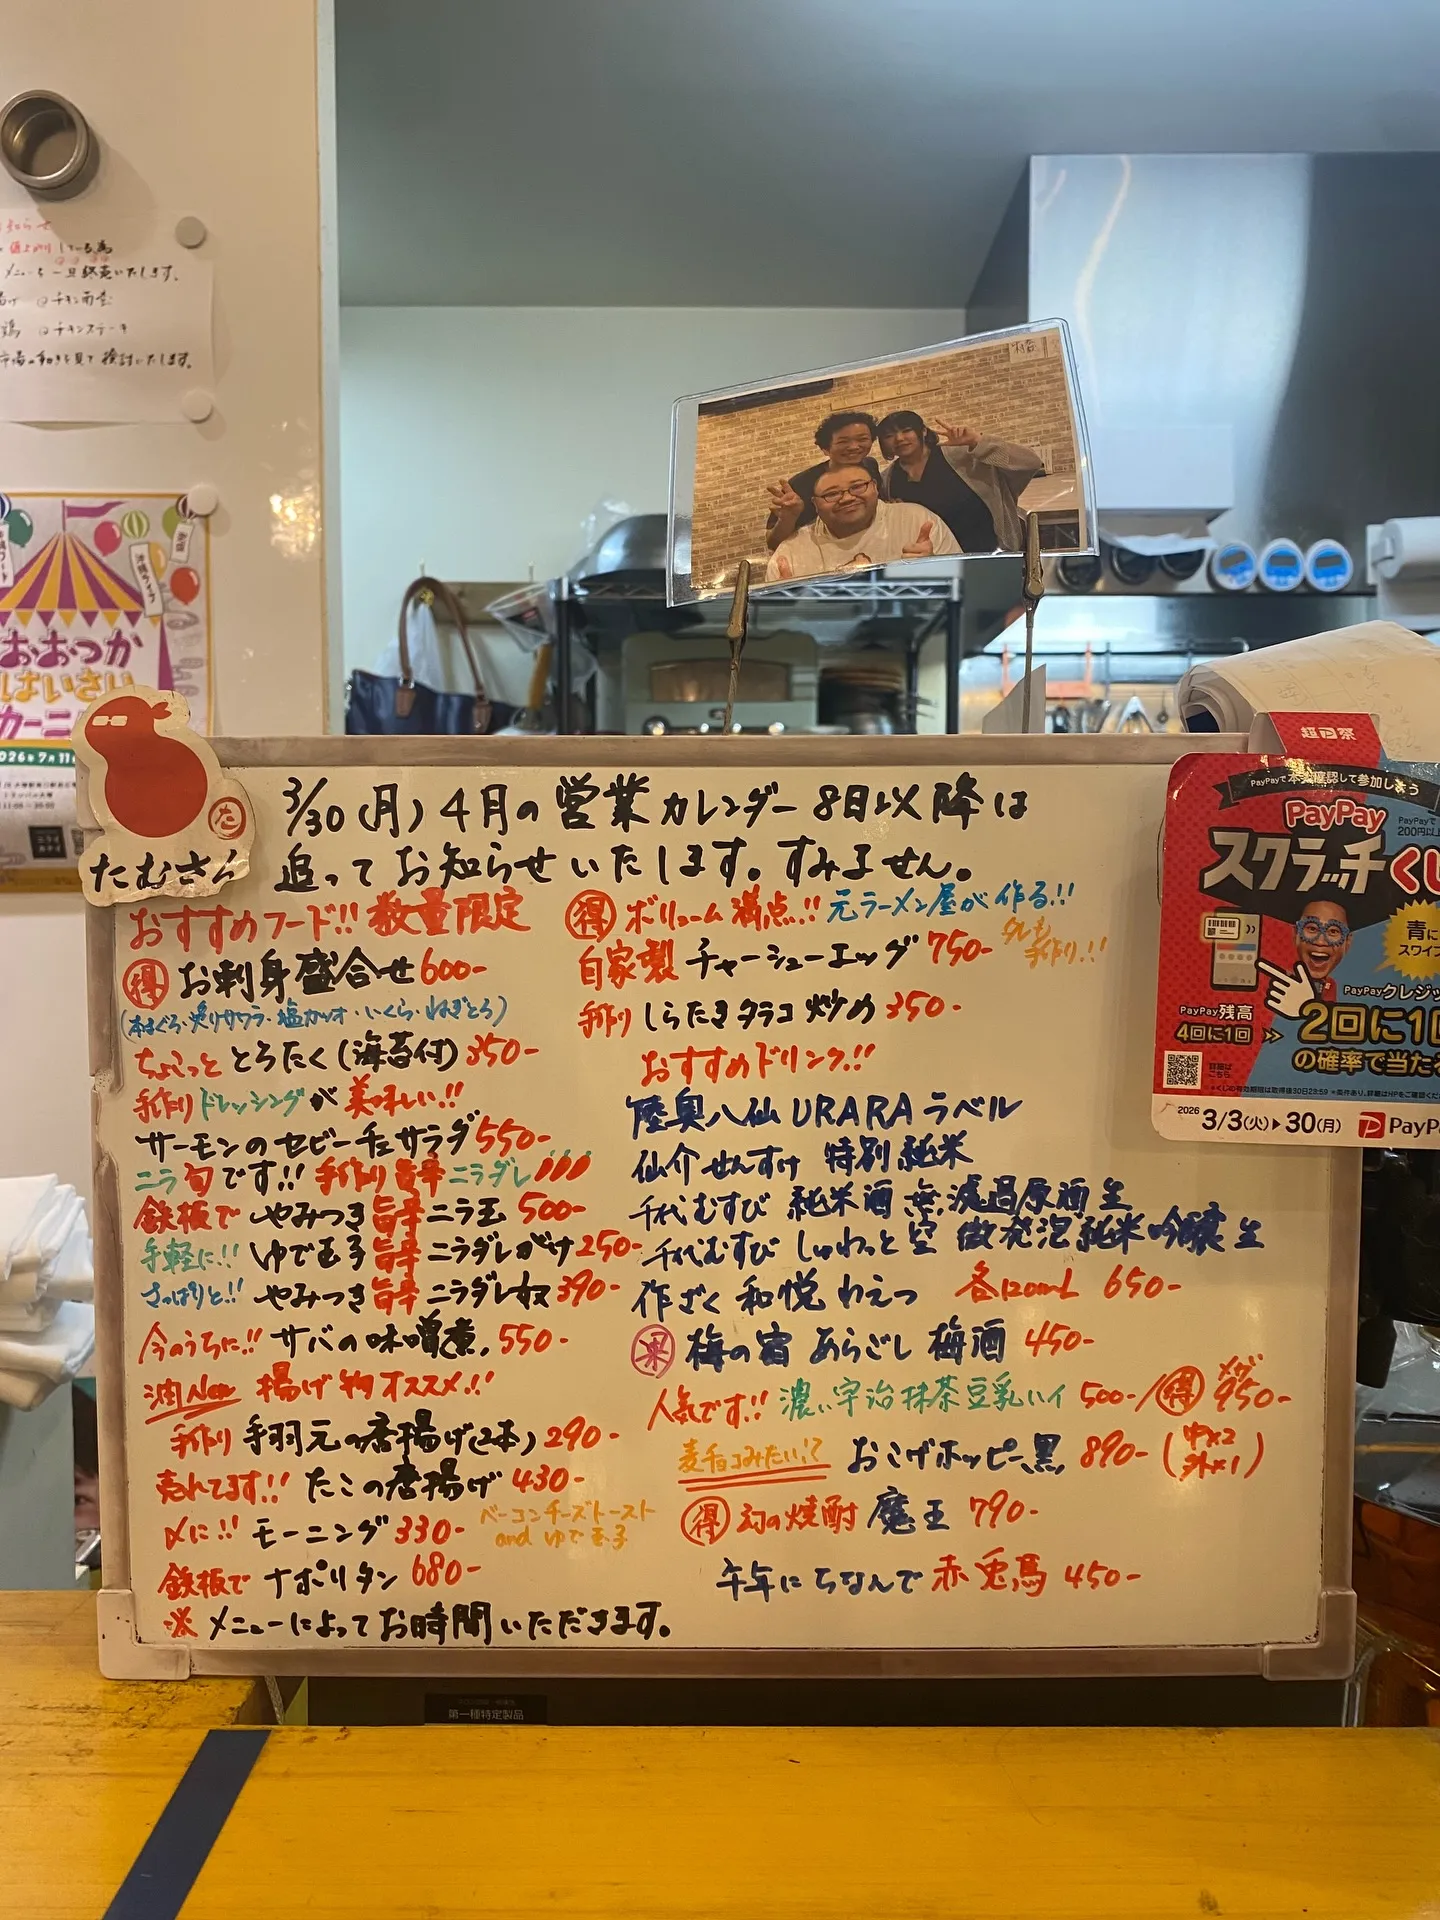 値上がりしている為
メニューを一旦終売いたします。
チキン南蛮
鶏 チキンステーキ
市場の動きを見て検討いたします。
おおつか
はいさい
カーニ
2026年7月11
たむさん
た
3/30(月) 4月の営業カレンダー 8日以降は
追ってお知らせいたします。すみません。
おすすめフード!! 数量限定
得 お刺身盛合せ 600-
(本まぐろ・炙りサワラ・塩カツオ・いくら・ねぎとろ)
ちょこっと とろたく(海苔付) 350-
手作りドレッシングが美味しい!!
サーモンのセビーチェサラダ 550-
ニラ旬です!! 手作り旨辛ニラダレ
鉄板で やみつき旨辛ニラ玉 500-
手軽に!! ゆで玉子旨辛ニラダレがけ 250-
さっぱりと!! やみつき旨辛ニラダレ奴 390-
今のうちに!! サバの味噌煮 550-
油New 揚げ物オススメ!!
手作り 手羽元の唐揚げ(2本) 290-
売れてます!! たこの唐揚げ 430-
〆に!! モーニング 330- ベーコンチーズトースト
and ゆで玉子
鉄板で ナポリタン 680-
※メニューによってお時間いただきます。
得 ボリューム満点!! 元ラーメン屋が作る!!
自家製 チャーシューエッグ 750- タレも
手作り!!
手作り しらたきタラコ炒め 350-
おすすめドリンク!!
陸奥八仙 URARAラベル
仙介 せんすけ 特別純米
千代むすび 純米酒 無濾過原酒 生
千代むすび しゅわっと空 微発泡純米吟醸 生
作 ざく 和悦 わえつ 各120mL 650-
果 梅の宿 あらごし 梅酒 450-
人気です!! 濃い宇治抹茶豆乳ハイ 500-/得 メガ 950-
麦チョコみたい!? おこげホッピー黒 890- (中×2
外×1)
得 幻の焼酎 魔王 790-
午年にちなんで 赤兎馬 450-
超PayPay祭
PayPayで本人確認して参加しよう
PayPay
PayPayで
スクラッチくじ
青に
スワイプ
PayPay残高
4回に1回
PayPayクレジット
2回に1回
の確率で当たる
2026 3/3(火)▶30(月) PayPay
第一種特定製品